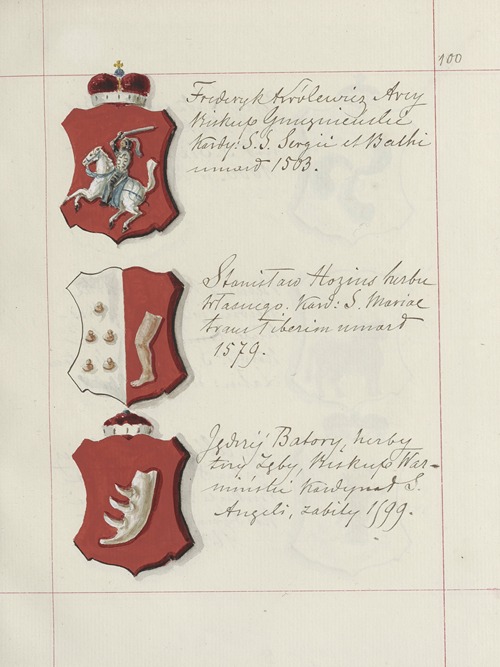 100
Fryderyk Królewicz Arcy
Biskup Gnieznieński
Kardy: S. S. Sergii et Bachi
umarł 1503.
Stanisław Hozius herbu
własnego. Kard: S. Mariae
trans Tiberim umarł
1579.
Jędrzéj Batory, herby
trzy Zęby, Biskup War-
miński Kardynał S.
Angeli, zabity 1599.